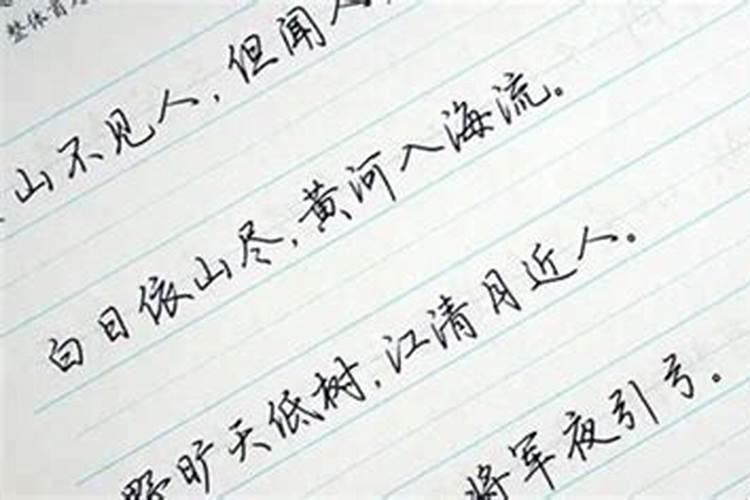 山不见人，但闻人
白日依山尽，黄河入海流。
野旷天低树，江清月近人。
将军夜引弓。